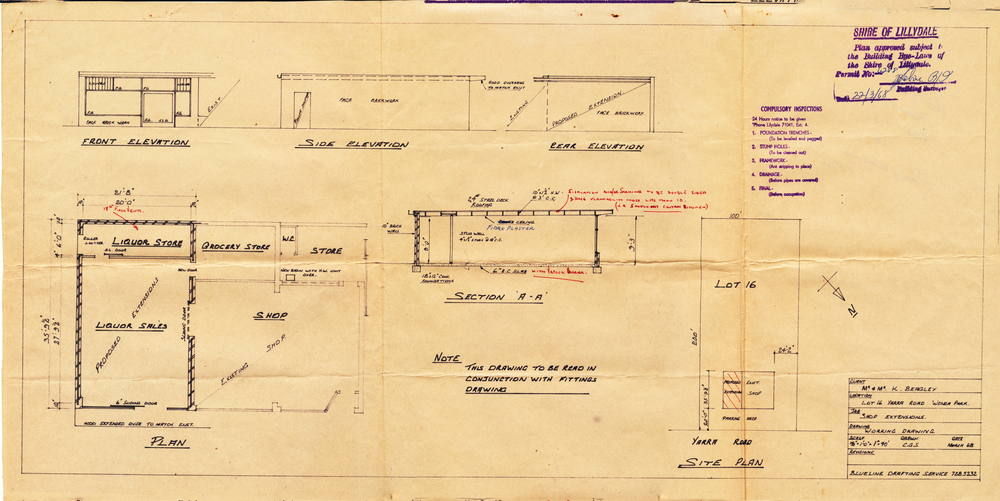 ELEVATION
SHIRE OF LILLYDALE
Plan approved subject to
the Building Bye-Laws of
the Shire of Lillydale.
Permit No:
22/3/68
Building Surveyor
COMPULSORY INSPECTIONS
24 Hours notice to be given
'Phone Lilydale 71041, Ext. 4.
1. FOUNDATION TRENCHES-
(To be levelled and pegged)
2. STUMP HOLES-
(To be cleaned out)
3. FRAMEWORK-
4. DRAINAGE-
(Before pipes are covered)
5. FINAL-
(Before occupation)
F.G. F.G.
F.G. F.G.
FACE BRICK WORK
EXIST.
FRONT ELEVATION
FACE BRICKWORK
HOOD OVERHANG
TO MATCH EXIST
SIDE ELEVATION
EXISTING
PROPOSED EXTENSION
FACE BRICKWORK
REAR ELEVATION
21'-8"
20'-0"
ROLLER
SHUTTER
LIQUOR STORE
SL. DOOR
GROCERY STORE
W.C.
STORE
NEW DOOR
NEW BASIN WITH H.W. UNIT
OVER
6'-0"
35'-9½"
27'-9½"
PROPOSED EXTENSIONS
LIQUOR SALES
SLIDING DOOR
SHOP
EXISTING SHOP
6' SLIDING DOOR
HOOD EXTENDED OVER TO MATCH EXIST.
PLAN
STEEL DECK
ROOFING
10" BRICK
WALL
CEILING
FIBRE PLASTER
STUD WALL
9'-0"
9'-3"
6" R.C. SLAB
18"x12" CONC.
FOUNDATIONS
SECTION 'A-A'
NOTE
THIS DRAWING TO BE READ IN
CONJUNCTION WITH FITTINGS
DRAWING
100'
LOT 16
N
200'
24'-2"
EXIST.
SHOP
PARKING AREA
YARRA ROAD
SITE PLAN
CLIENT
Mr & Mrs K. BEAGLEY
LOCATION
LOT 16 YARRA ROAD WONGA PARK.
JOB
SHOP EXTENSIONS.
DRAWING
WORKING DRAWING
SCALE DRAWN DATE
C.G.S. MARCH 68
REVISIONS
BLUELINE DRAFTING SERVICE 728 3232